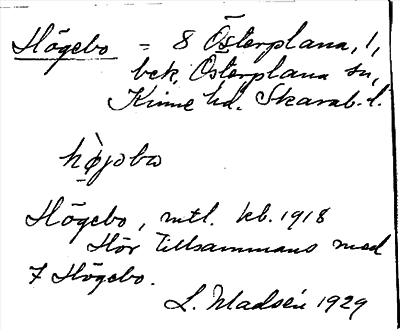 Högebo = 8 Österplana, 1,
bek. Österplana sn,
Kinne hd. Skarab. l.
hø̀jobω
Högebo, mtl. kb. 1918
Hör tillsammans med
7 Högebo.
L. Madsén 1929